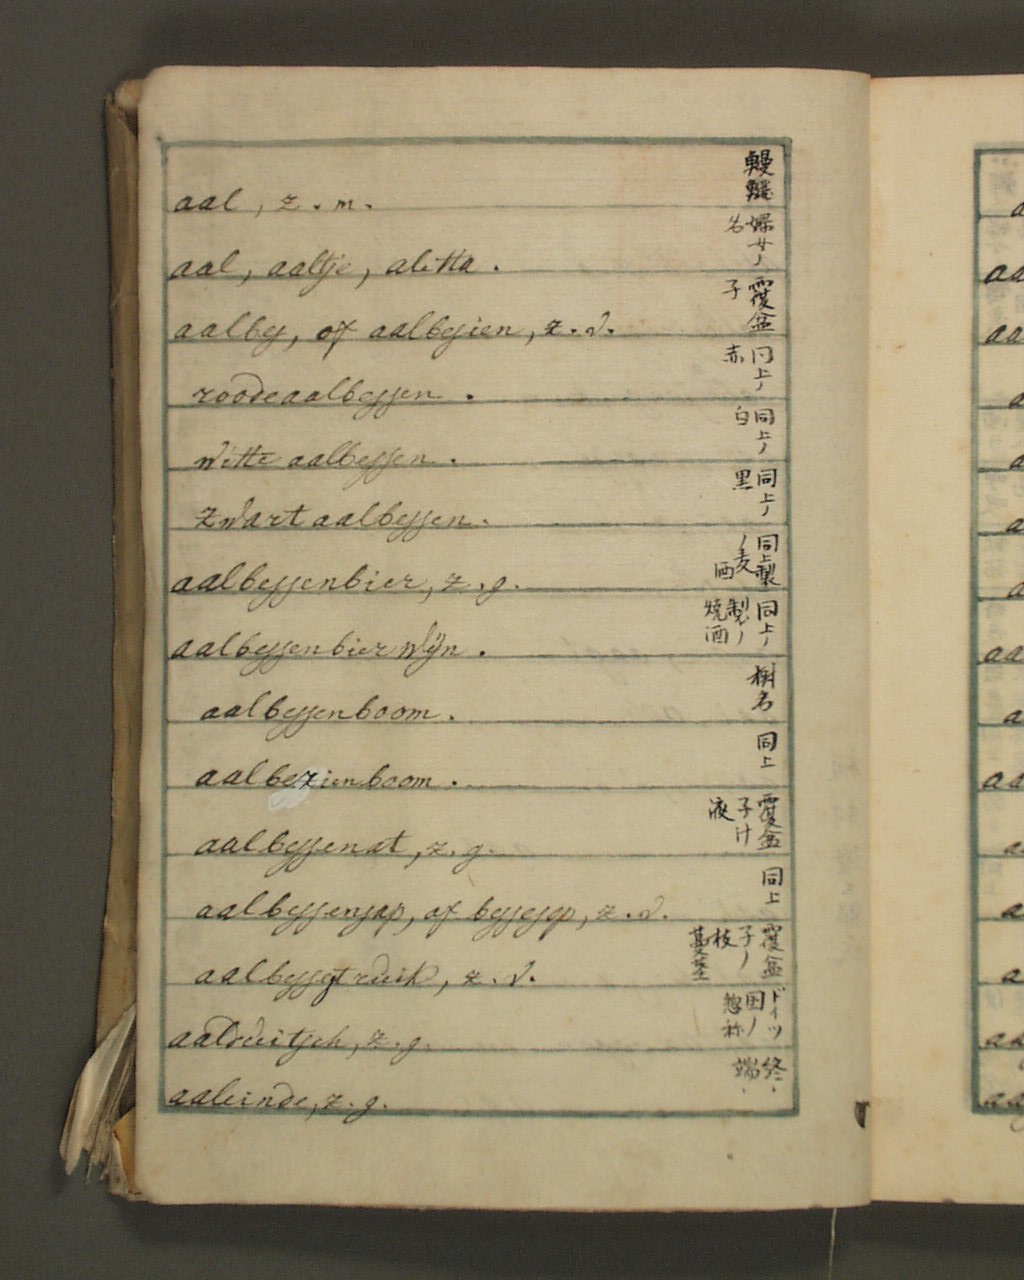 aal, z. m. 鰻鱺
aal, aaltje, alitta. 婦女ノ名
aalby, of aalbesien, z. v. 覆盆子
roode aalbessen. 同上ノ赤
witte aalbessen. 同上ノ白
zwart aalbessen. 同上ノ黒
aalbessenbier, z. g. 同上製ノ麦酒
aalbessenbierwijn. 同上ノ製ノ焼酒
aalbessenboom. 樹名
aalbezienboom. 同上
aalbessenat, z. g. 覆盆子汁液
aalbessensap, of bessesop, z. v. 同上
aalbessestruik, z. v. 覆盆子ノ枝
aalduitsch, z. g. ドイツ国ノ惣称
aaleinde, z. g. 終端